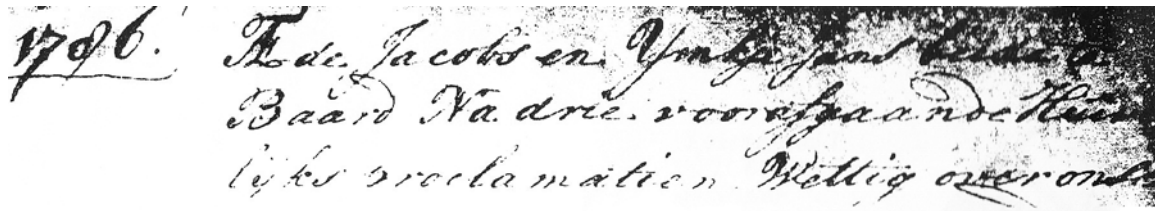 1786. Æde Jacobs en Ymkje Jans beide
Baard Na drie voorafgaande Huw
lijks proclamatien Wettig over ons